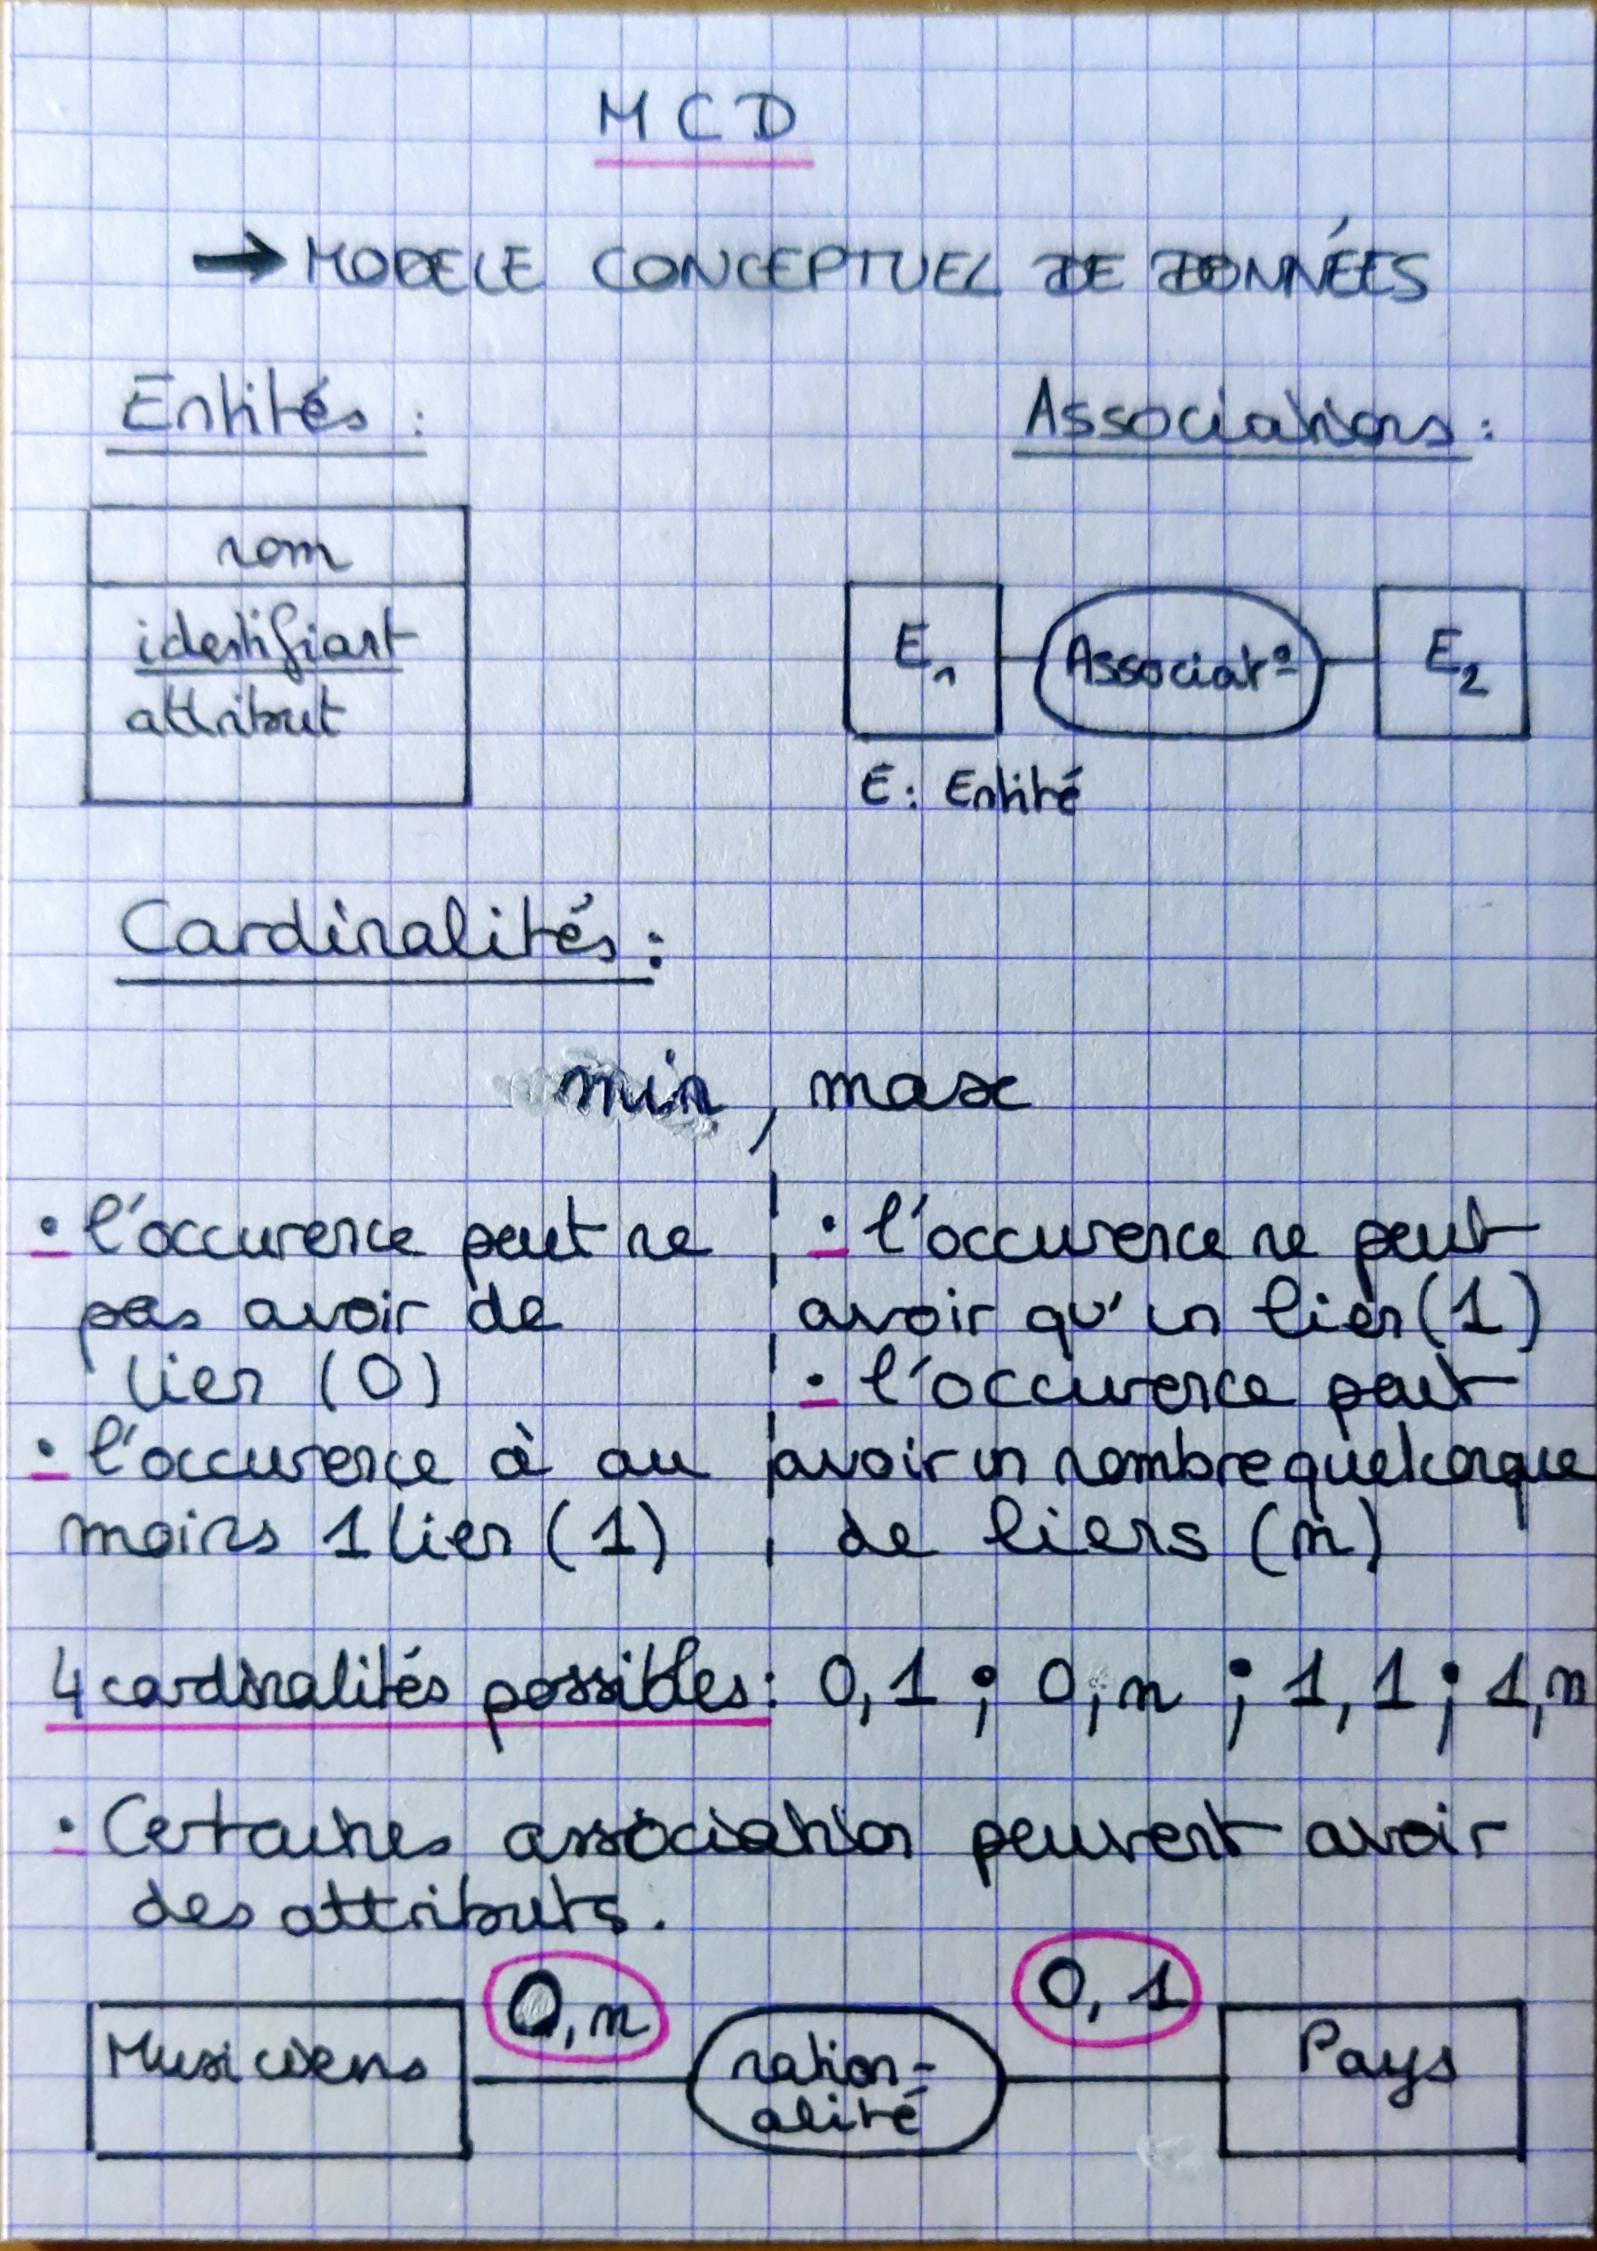 MCD
→ MODELE CONCEPTUEL DE DONNÉES
Entités :
nom
identifiant
attribut
Associations :
E1
Associat°
E2
E : Entité
Cardinalités :
min , max
• l'occurence peut ne
pas avoir de
lien (0)
• l'occurence à au
moins 1 lien (1)
• l'occurence ne peut
avoir qu'un lien (1)
• l'occurence peut
avoir un nombre quelconque
de liens (n)
4 cardinalités possibles : 0,1 ; 0,n ; 1,1 ; 1,n
• Certaines association peuvent avoir
des attributs.
Musiciens
0,n
nation-
alité
0,1
Pays